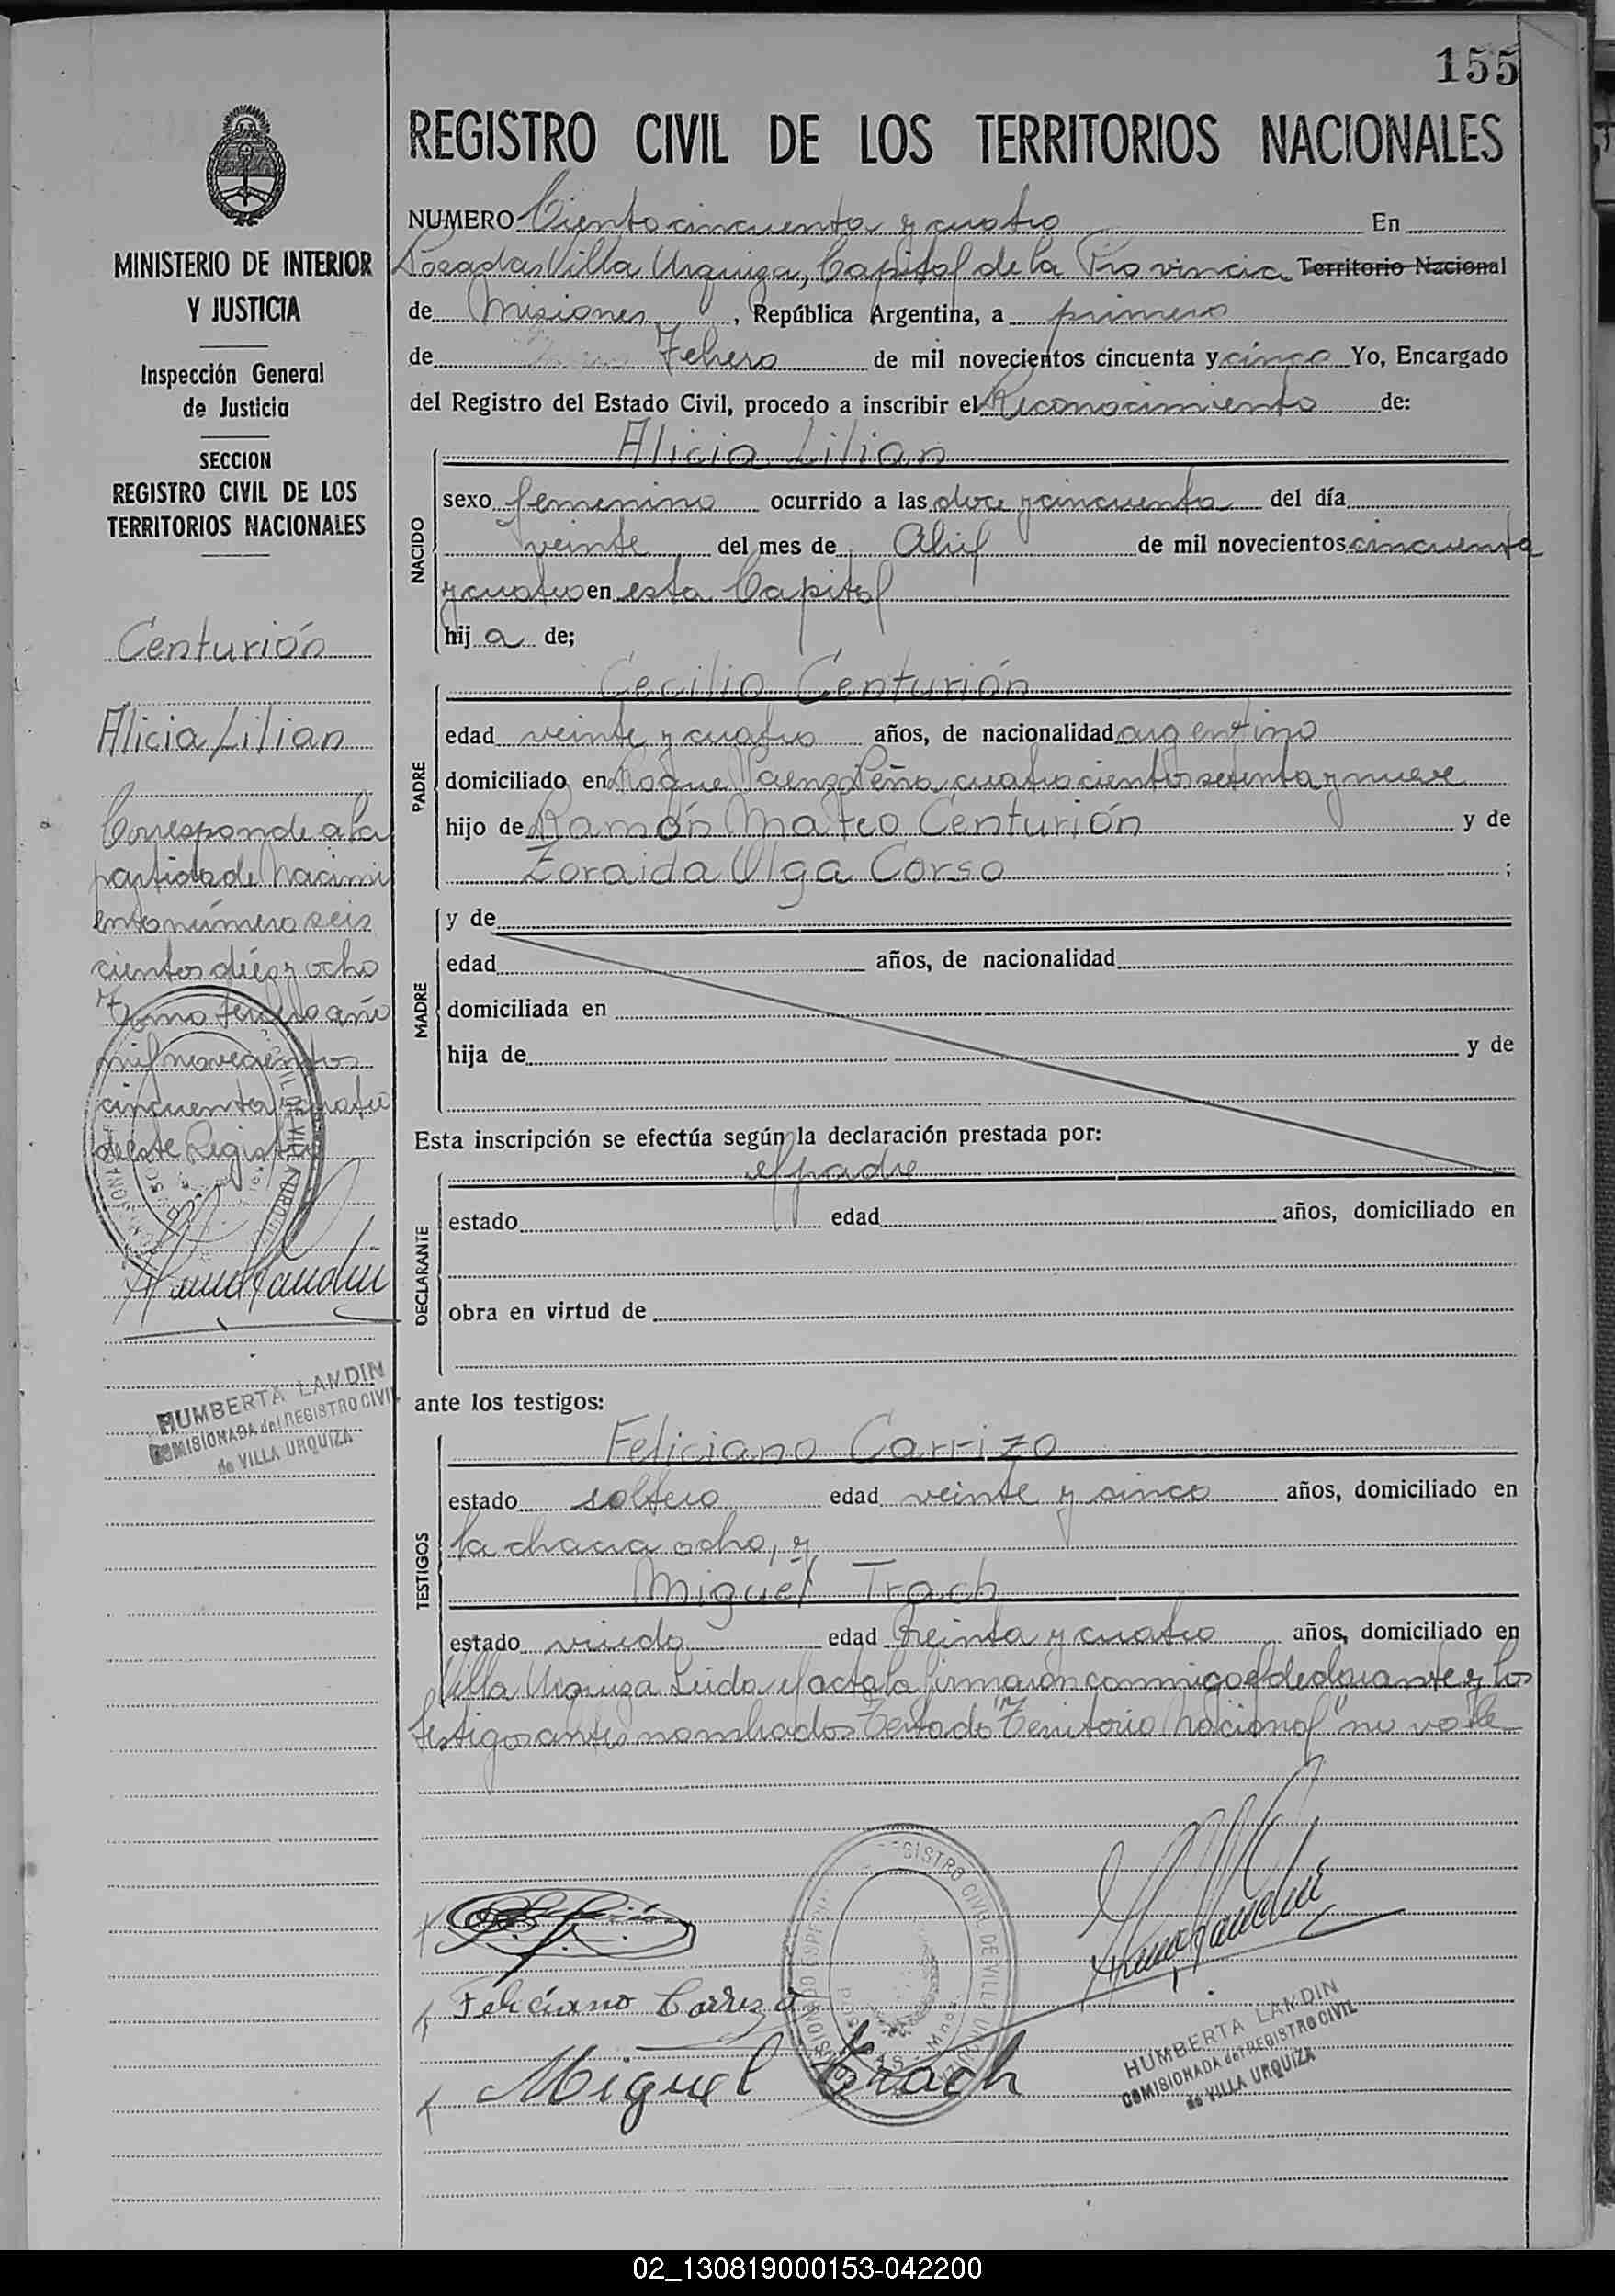 155
REGISTRO CIVIL DE LOS TERRITORIOS NACIONALES
MINISTERIO DE INTERIOR
Y JUSTICIA
Inspección General
de Justicia
SECCION
REGISTRO CIVIL DE LOS
TERRITORIOS NACIONALES
Centurión
Alicia Lilian
Corresponde a la
partida de Nacimi
ento número seis
cientos diéz y ocho
Tomo tercero año
mil novecientos
cincuenta y cuatro
de este Registro
HUMBERTA LANDIN
COMISIONADA del REGISTRO CIVIL
de VILLA URQUIZA
NUMERO Ciento cincuenta y cuatro En
Posadas Villa Urquiza, Capital de la Provincia Territorio Nacional
de Misiones, República Argentina, a primero
de Febrero de mil novecientos cincuenta y cinco Yo, Encargado
del Registro del Estado Civil, procedo a inscribir el Reconocimiento de:
NACIDO
Alicia Lilian
sexo femenino ocurrido a las doce y cincuenta del día
veinte del mes de Abril de mil novecientos cincuenta
y cuatro en esta Capital
hij a de;
PADRE
Cecilio Centurión
edad veinte y cuatro años, de nacionalidad argentino
domiciliado en Roque Saenz Peña cuatrocientos setenta y nueve
hijo de Ramón Mateo Centurión y de
Zoraida Olga Corso ;
MADRE
y de
edad años, de nacionalidad
domiciliada en
hija de y de
Esta inscripción se efectúa según la declaración prestada por:
DECLARANTE
el padre
estado edad años, domiciliado en
obra en virtud de
ante los testigos:
TESTIGOS
Feliciano Carrizo
estado soltero edad veinte y cinco años, domiciliado en
la chacra ocho, y
Miguel Trach
estado viudo edad treinta y cuatro años, domiciliado en
Villa Urquiza Leida el acta la firmaron conmigo el declarante y los
testigos antes nombrados Testado "Territorio Nacional" no vale
REGISTRO CIVIL DE VILLA URQUIZA
Feliciano Carrizo
Miguel Trach
HUMBERTA LANDIN
COMISIONADA del REGISTRO CIVIL
de VILLA URQUIZA
02_130819000153-042200